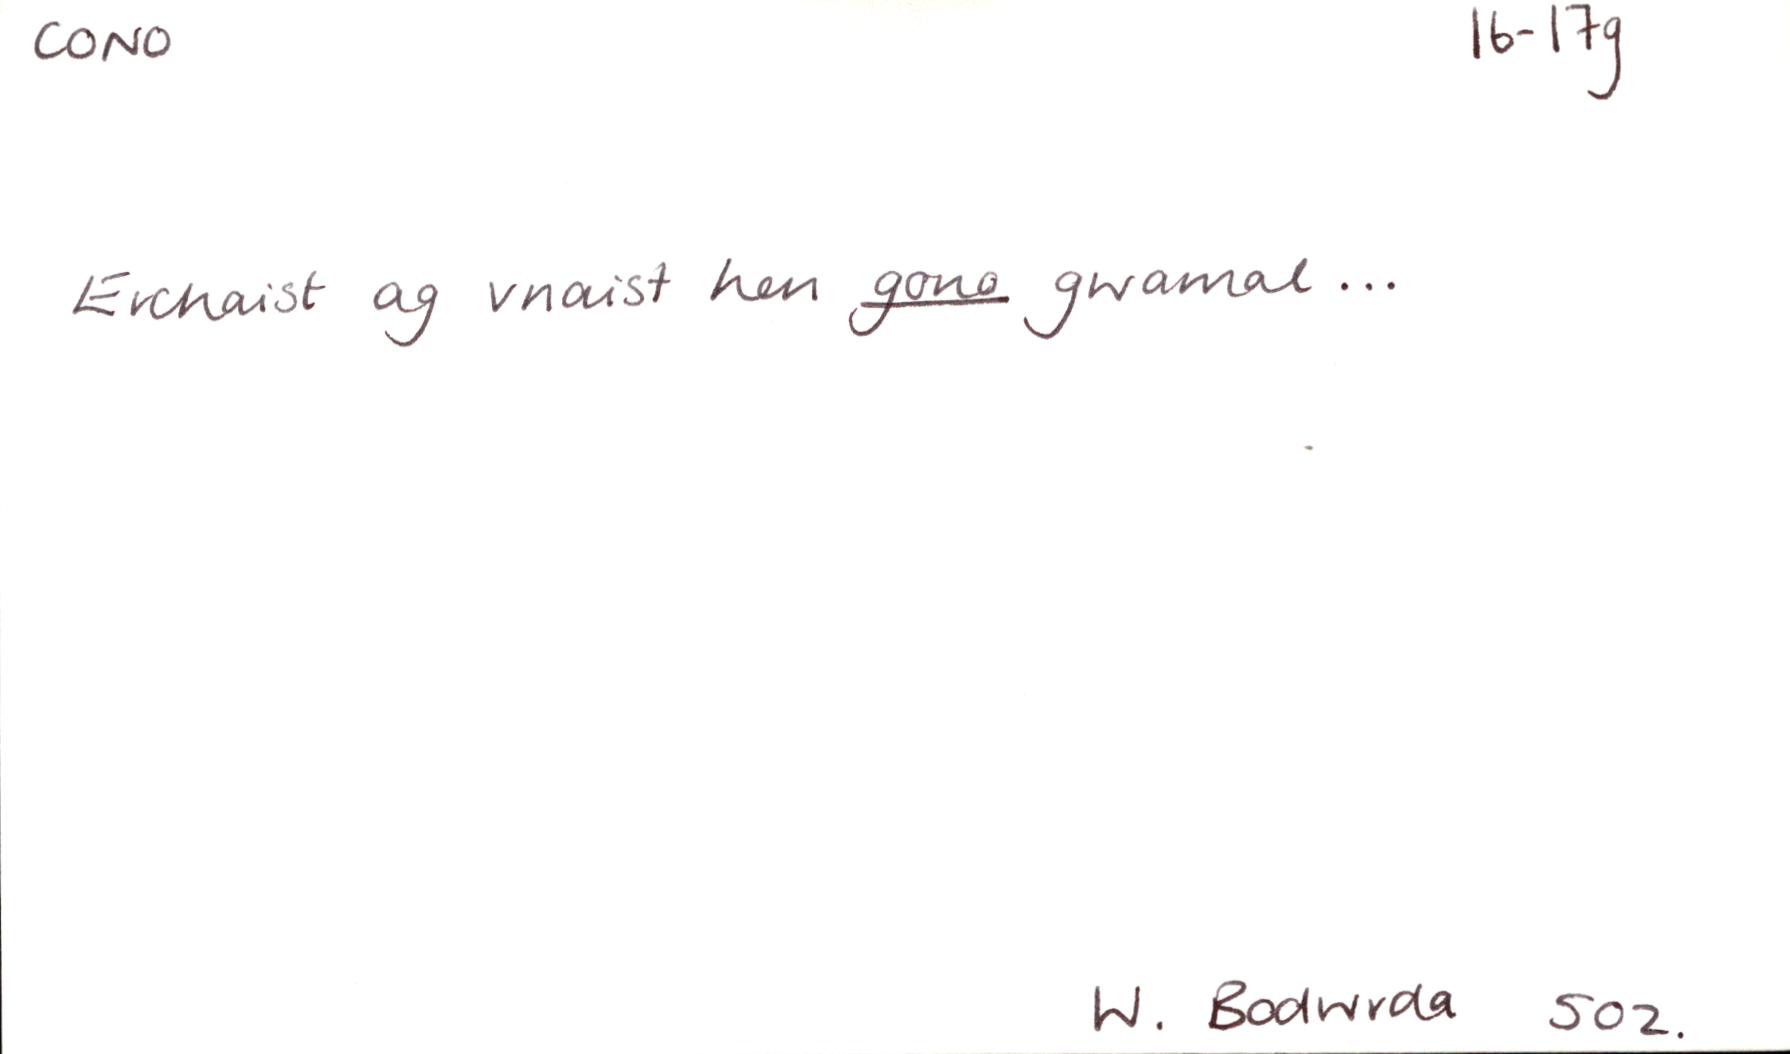 CONO 16-17g
Erchaist ag vnaist hen gono gwamal...
W. Bodwrda 502.